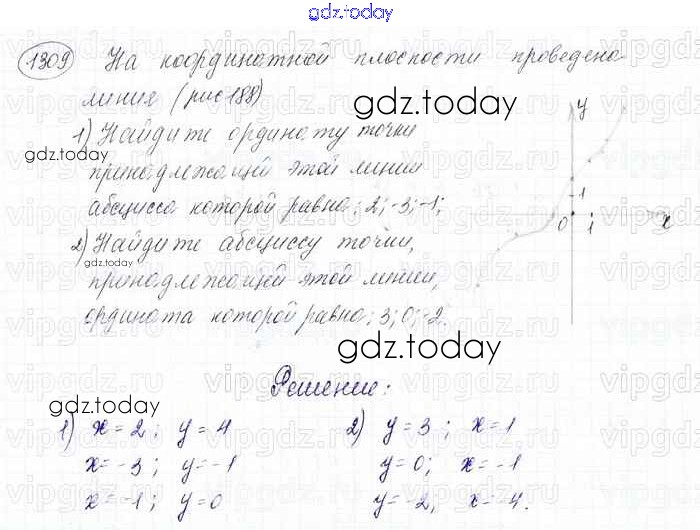 gdz.today
1309 На координатной плоскости проведена
линия (рис 188)
gdz.today
1) Найдите ординату точки
gdz.today
принадлежащей этой линии
абсцисса которой равна: 2; -3; -1;
2) Найдите абсциссу точки,
gdz.today
принадлежащей этой линии,
ордината которой равна: 3; 0; -2.
y
1
0 1 x
gdz.today
Решение:
gdz.today
1) x = 2; y = 4
x = -3; y = -1
x = -1; y = 0
2) y = 3; x = 1
y = 0; x = -1
y = -2, x = -4.